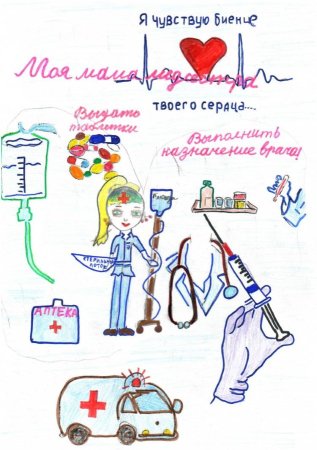 Я чувствую биение
Моя мама медсестра
твоего сердца...
Выдать
таблетки
Выполнить
назначение врача!
АПТЕКА